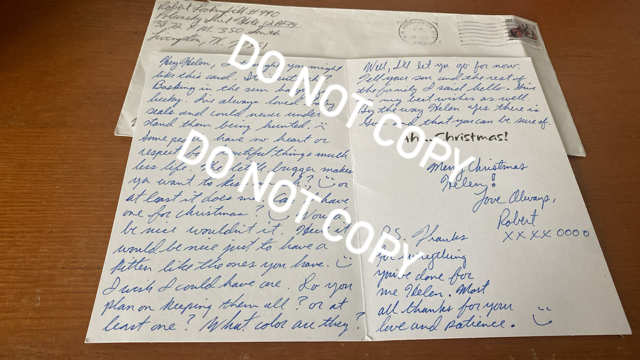 Polunsky Unit
3872 FM 350 South
Livingston, TX.
Hey Helen, thought you might
like this card.
Basking in the sun
lucky. I've always loved baby
seals and could never under-
stand them being hunted.
Some people have no heart or
respect for beautiful things much
less life. The little bugger makes
you want to ? or
at least it does me. Can I have
one for Christmas?
be nice wouldn't it. Heck it
would be nice just to have a
kitten like the ones you have.
I wish I could have one. So you
plan on keeping them all? or at
least one? What color are they?
Well, I'll let ya go for now.
Tell your son and the rest of
the family I said hello. Give
my best wishes as well.
By the way Helen yes there is
God and that you can be sure of.
Christmas!
Merry Christmas
Helen!
Love Always,
Robert
XXXX OOOO
P.S. Thanks
for everything
you've done for
me Helen. Most
all thanks for your
love and patience.
DO NOT COPY
DO NOT COPY